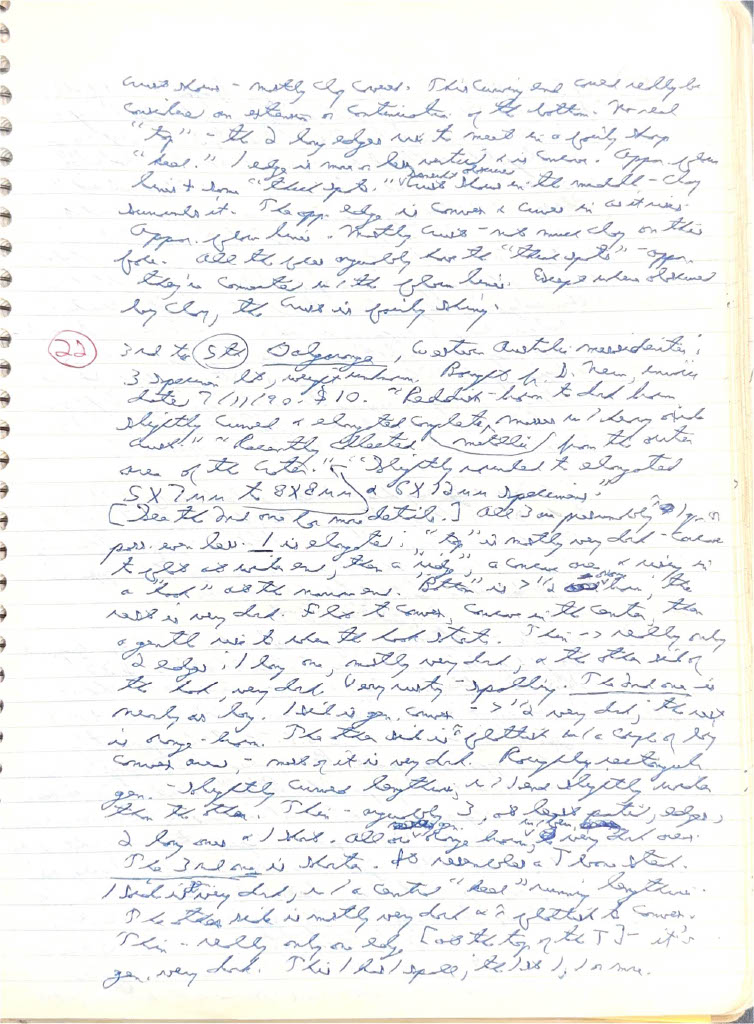 crust shows - mostly clay covered. This curving end could really be
considered an extension or continuation of the bottom. No real
"top" - the 2 long edges rise to meet in a fairly sharp
"keel." 1 edge is more or less vertical & is concave. Appar. flow
lines & some "thick spots." Crust shows in the middle - clay
surrounds it. The opp. edge is convex & curves in
Appar. flow lines. Mostly crust - not much clay on this
face. All the faces arguably have the "thick spots" - appar.
they're connected w/ the flow lines. Except where obscured
by clay, the crust is fairly shiny.
22 3rd to 5th Dalgaranga, Western Australia mesosiderite;
3 specimen lot, weight unknown. Bought fr. D. New, invoice
date 7/11/90. $10. "Reddish-brown to dark brown
slightly curved & elongated complete masses w/ heavy oxide
crust." "Recently collected metallic from the outer
area of the crater." "Slightly rounded to elongated
5X7mm to 8X8mm & 6X12mm specimens."
[See the 2nd one for more details.] All 3 are presumably 1 gm. or
poss. even less. 1 is elongated; "top" is mostly very dark - concave
to flat at wide end, then a "ridge", a concave area & rising in
a "hook" at the narrow end. "Bottom" is > 1/2 brown, the
rest is very dark. Flat to convex, concave in the center, then
a gentle rise to where the hook starts. Thin -> really only
2 edges; 1 long one, mostly very dark, & the other side of
the hook, very dark. Very rusty - spalling. The 2nd one is
nearly as long. 1 side is gen. convex - > 1/2 very dark; the rest
is orange-brown. The other side is flattish w/ a couple of long
convex areas, - most of it is very dark. Roughly rectangular
gen. - slightly curved lengthwise, w/ 1 end slightly wider
than the other. Thin - arguably 3, at least partial, edges,
2 long ones & 1 short. All are gen. orange brown, w/ very dark areas.
The 3rd one is shorter. It resembles a T bone steak.
1 side is very dark, w/ a central "keel" running lengthwise.
The other side is mostly very dark & flattish to convex.
Thin - really only one edge, [at the top of the T] - it's
gen. very dark. This 1 has 1 spall; the 1st 1, 1 or more.